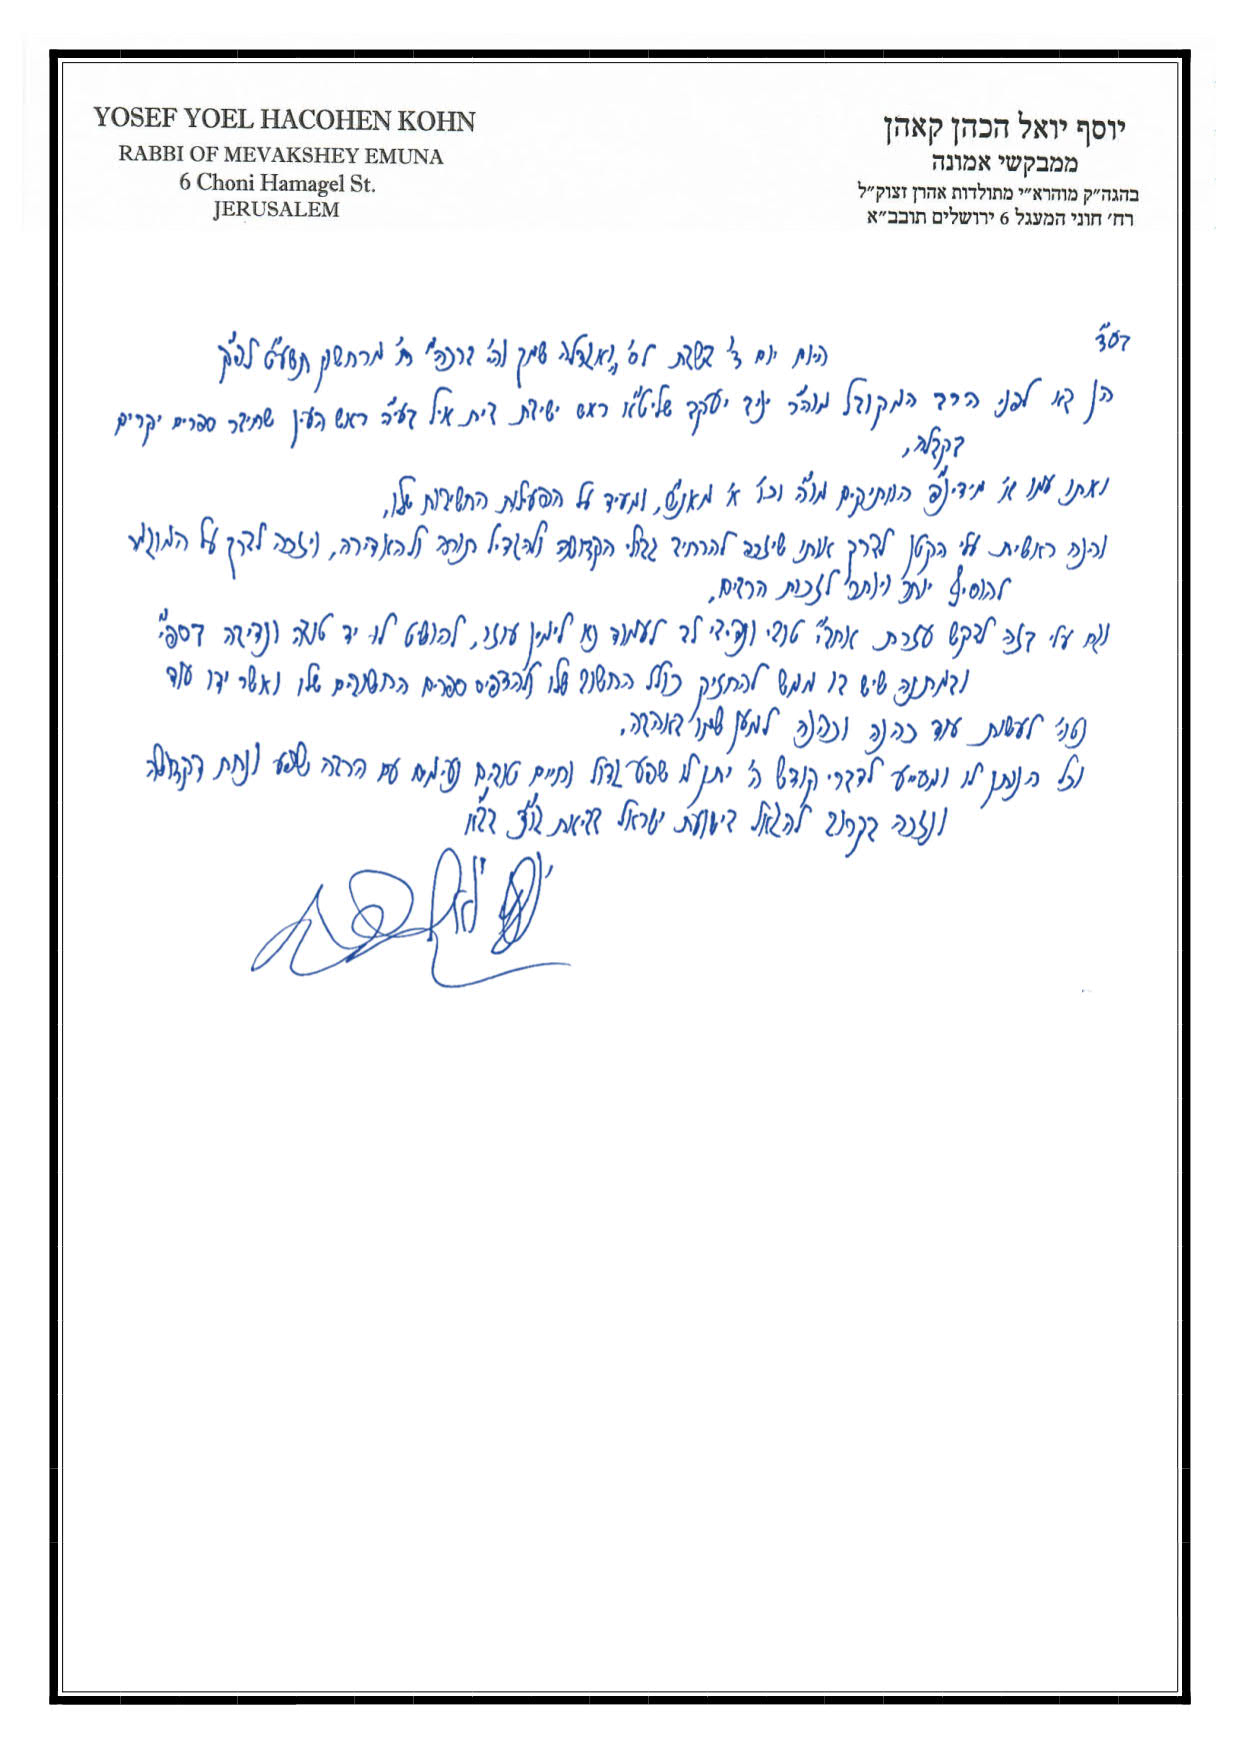 YOSEF YOEL HACOHEN KOHN
RABBI OF MEVAKSHEY EMUNA
6 Choni Hamagel St.
JERUSALEM
יוסף יואל הכהן קאהן
ממבקשי אמונה
בהגה״ק מוהרא״י מתולדות אהרן זצוק״ל
רח׳ חוני המעגל 6 ירושלים תובב״א
בעד
היום יום ד' בשבת לס' ואגדלה שמך והי' ברכה ח' מרחשון תשע"ט לפ"ק
הן בא לפני הרב המקובל מוה"ר יניב יעקב שליט"א ראש ישיבת בית אל בעי"ה ראש העין שחיבר ספרים יקרים
בקבלה,
ואתו עמו א' מידי הוותיקים מו"ה וכו' א' מאנ"ש, ומעיד על הפעילות החשובות שלו,
והנה ראשית עלי הקטן לברך אותו שיזכה להרחיב גבולי הקדושה ולהגדיל תורה ולהאדירה, ויזכה לברך על המוגמר
להוסיף יותר ויותר לזכות הרבים,
וגם עלי בזה לבקש עזרת אחב"י טובי ונדיבי לב לעמוד נא לימין עוזו, להושיט לו יד טובה ונדיבה
ובמתנה שיש בו ממש להחזיק כולל החשוב שלו ולהדפיס ספרים החשובים שלו ואשר ידו עוד
נטוי' לעשות עוד כהנה וכהנה למען שמו באהבה.
וכל הנותן לו ומסייע לדברי קודש ה' יתן לו שפע גדול וחיים טובים נעימים עם הרבה שפע ונחת דקדושה
ונזכה בקרוב להגאל בישועת ישראל בביאת גוא"צ בב"א